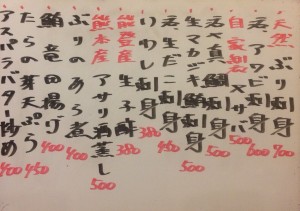 天然ぶり刺身 700
活アワビ刺身 600
自家製〆サバ 500
活〆真鯛刺身 500
活生だこ刺身 450
生カンパチ刺身 500
いわし刺身 380
能登産生子酢 380
熊本産アサリ酒蒸し 500
ぶりのあら煮 400
鮪竜田揚げ 400
たらの芽天ぷら 450
アスパラバター炒め 400